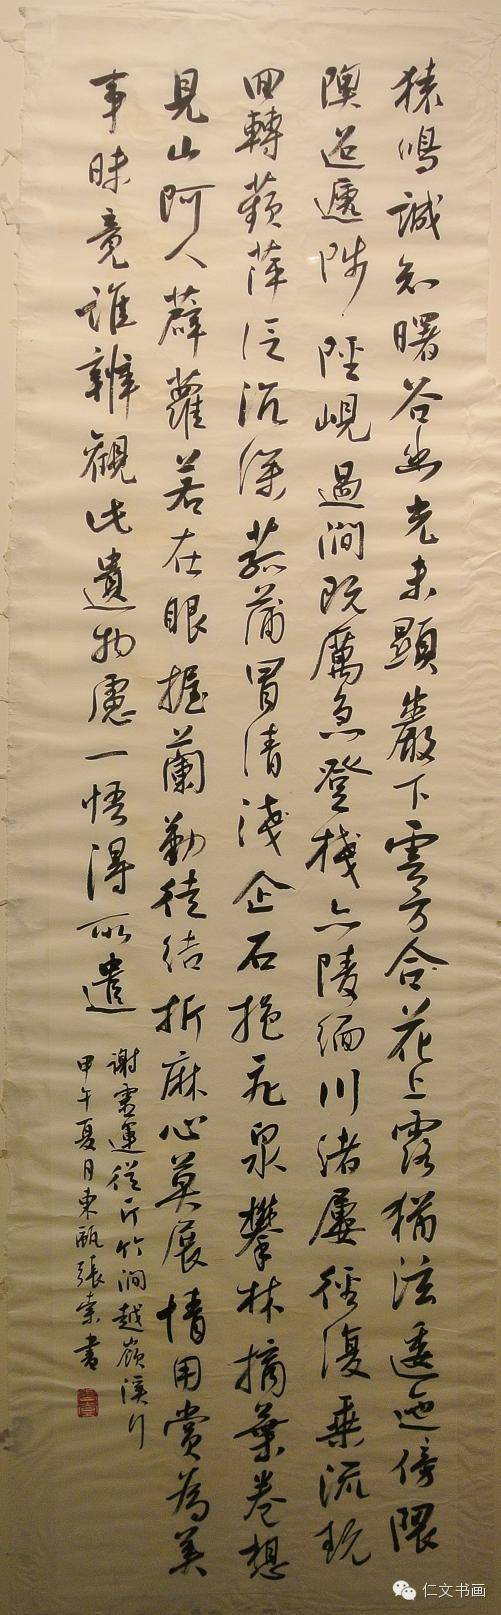 猿鳴誠知曙谷幽光未顯巖下雲方合花上露猶泫逶迤傍隈
隩迢遞陟陘峴過澗既厲急登棧亦陵緬川渚屢徑復乘流玩
回轉蘋萍泛沉深菰蒲冒清淺企石挹飛泉攀林摘葉卷想
見山阿人薜蘿若在眼握蘭勤徒結折麻心莫展情用賞為美
事昧竟誰辨觀此遺物慮一悟得所遣
謝靈運從斤竹澗越嶺溪行
甲午夏月東甌張索書
仁文书画